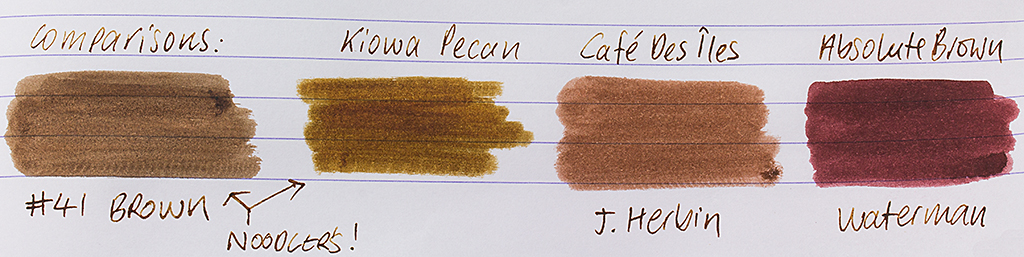 Comparisons:
Kiowa Pecan
Café Des Îles
Absolute Brown
#41 BROWN
NOODLER'S!
J. Herbin
Waterman